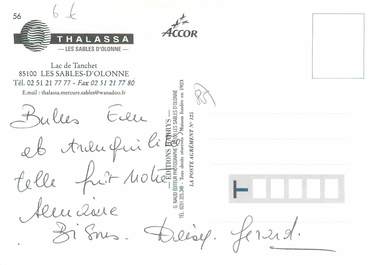 56
6 €
THALASSA
LES SABLES D'OLONNE
Lac de Tanchet
85100 LES SABLES-D'OLONNE
Tél. 02 51 21 77 77 - Fax 02 51 21 77 80
E.mail : thalassa.mercure.sables@wanadoo.fr
ACCOR
Bulles Eau
et tranquillité
telle fut notre
semaine
Bisous. Gérard.
LA POSTE AGRÉMENT N° 125